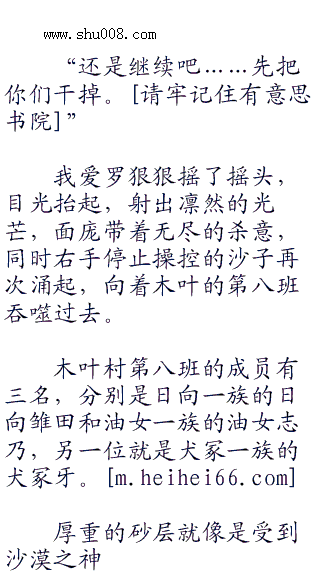 www.shu008.com
“还是继续吧……先把
你们干掉。[请牢记住有意思
书院]”
我爱罗狠狠摇了摇头，
目光抬起，射出凛然的光
芒，面庞带着无尽的杀意，
同时右手停止操控的沙子再
次涌起，向着木叶的第八班
吞噬过去。
木叶村第八班的成员有
三名，分别是日向一族的日
向雏田和油女一族的油女志
乃，另一位就是犬冢一族的
犬冢牙。[m.heihei66.com]
厚重的砂层就像是受到
沙漠之神